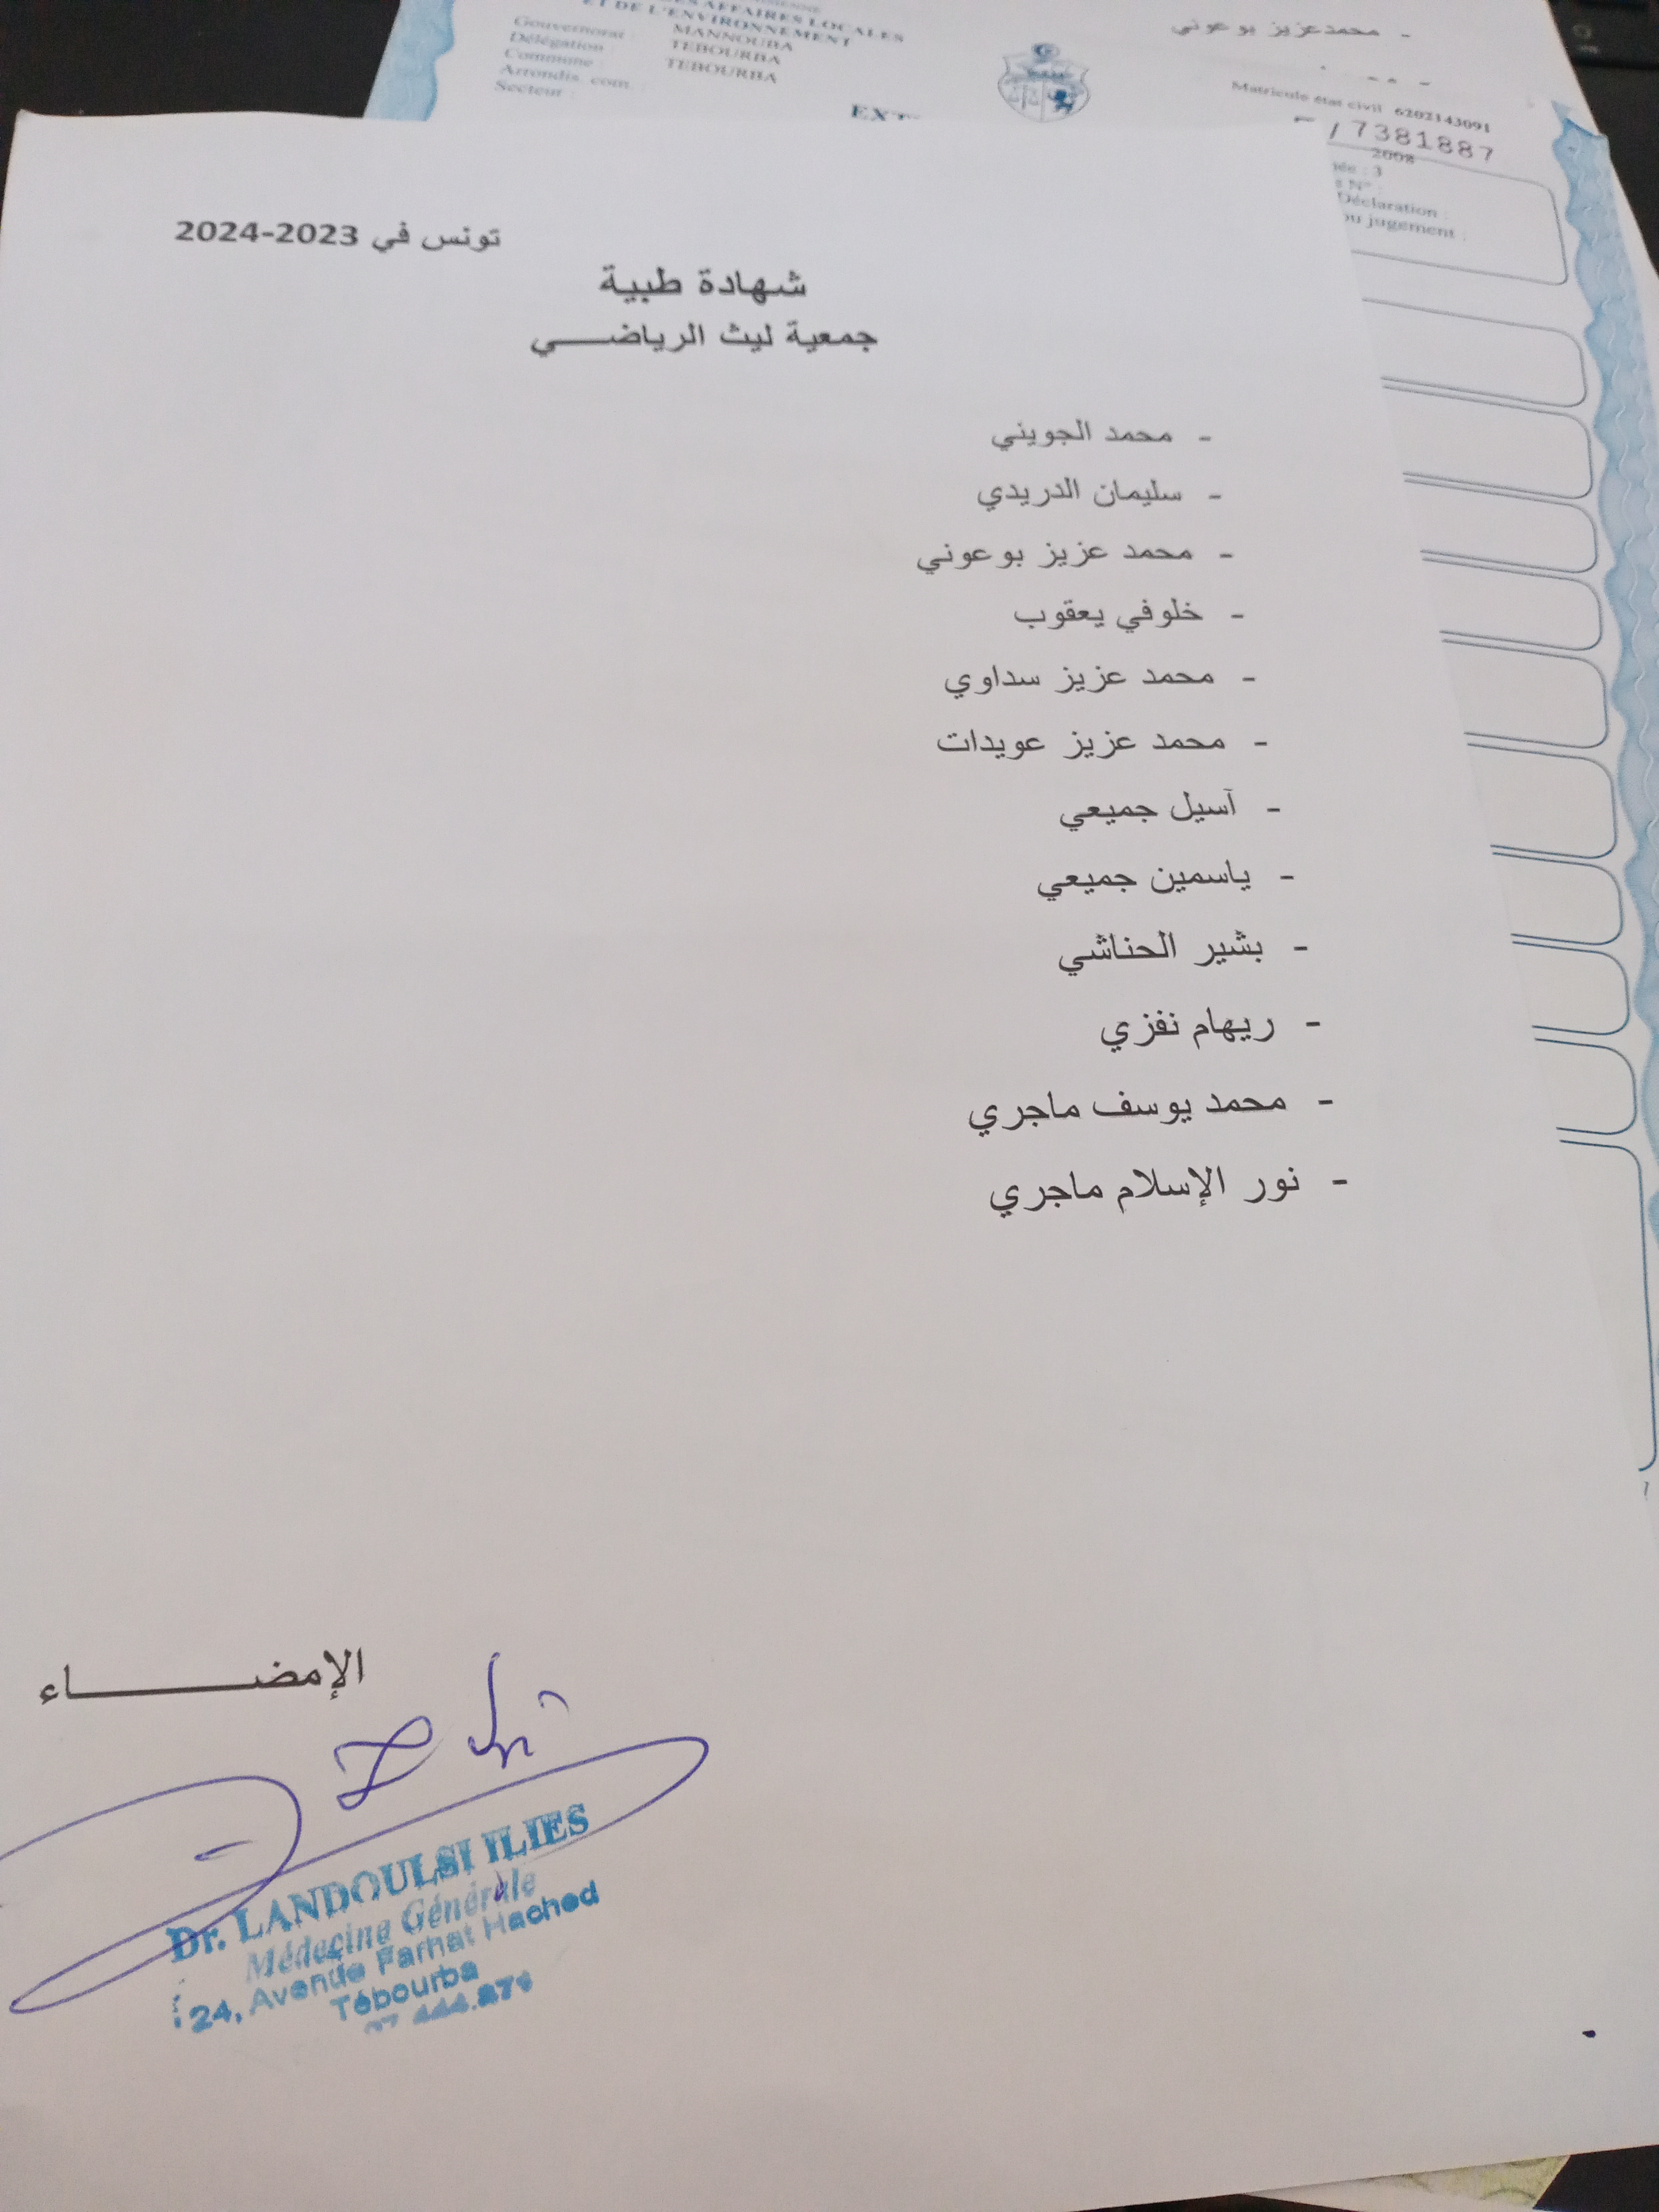 DES AFFAIRES LOCALES
ET DE L'ENVIRONNEMENT
Gouvernorat : MANNOUBA
Délégation TEBOURBA
Commune TEBOURBA
Arrondis. com. :
Secteur :
- محمدعزيز بوعوني
Matricule état civil 6202143091
7381887
2008
3
N° :
Déclaration :
ou jugement :
تونس في 2023-2024
شهادة طبية
جمعية ليث الرياضـــــي
- محمد الجويني
- سليمان الدريدي
- محمد عزيز بوعوني
- خلوفي يعقوب
- محمد عزيز سداوي
- محمد عزيز عويدات
- آسيل جميعي
- ياسمين جميعي
- بشير الحناشي
- ريهام نفزي
- محمد يوسف ماجري
- نور الإسلام ماجري
الإمضـــــــــــاء
Dr. LANDOULSI ILIES
Médecine Générale
24, Avenue Farhat Hached
Tébourba